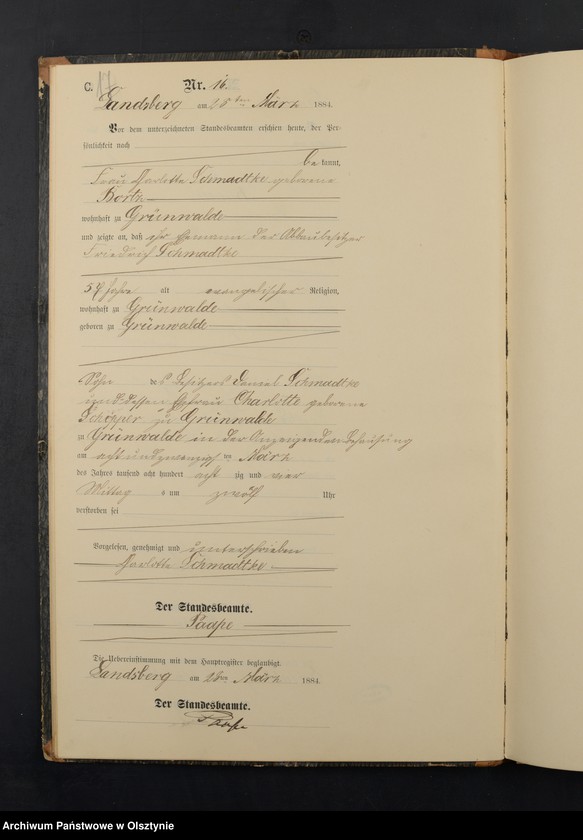 C. 17
Nr. 16.
Landsberg am 28ten März 1884.
Vor dem unterzeichneten Standesbeamten erschien heute, der Per-
sönlichkeit nach
be kannt,
Frau Charlotte Schmadtke geborene
Bortz
wohnhaft zu Grünwalde
und zeigte an, daß ihr Ehemann der Abbaubesitzer
Friedrich Schmadtke
57 Jahre alt evangelischer Religion,
wohnhaft zu Grünwalde
geboren zu Grünwalde
Sohn des Besitzers Daniel Schmadtke
und dessen Ehefrau Charlotte geborene
Schöpper zu Grünwalde
zu Grünwalde in der Behausung
am acht und zwanzigsten März
des Jahres tausend acht hundert acht zig und vier
Mittag s um zwölf Uhr
verstorben sei
Vorgelesen, genehmigt und unterschrieben
Charlotte Schmadtke
Der Standesbeamte.
Paape
Die Uebereinstimmung mit dem Hauptregister beglaubigt.
Landsberg am 28ten März 1884.
Der Standesbeamte.
Paape
Archiwum Państwowe w Olsztynie